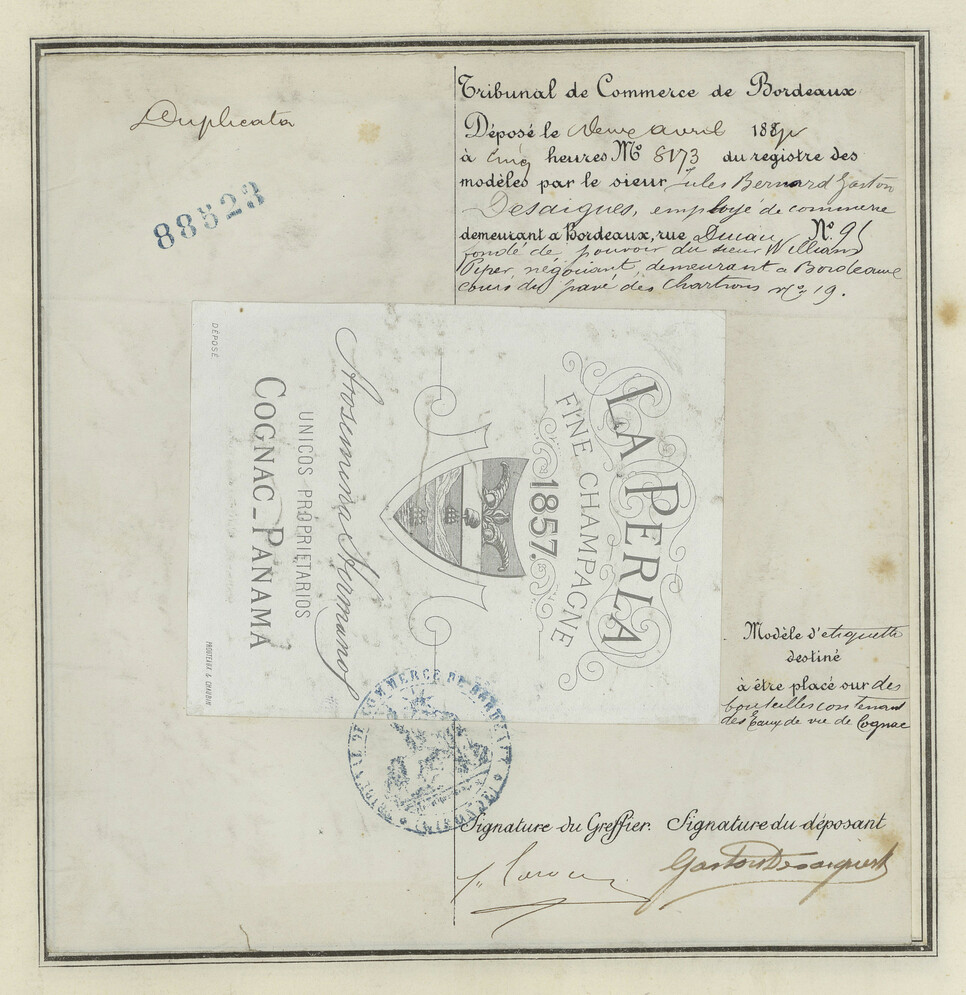 Duplicata
88523
Tribunal de Commerce de Bordeaux
Déposé le Neuf avril 188
à cinq heures No 8173 du registre des
modèles par le sieur Jules Bernard Gaston
Desaigues, employé de commerce
demeurant a Bordeaux, rue No.
fondé de pouvoir du sieur William
Piper, négociant, demeurant a Bordeaux
cours du pavé des Chartrons no 19.
LA PERLA
FINE CHAMPAGNE
1857.
Arosemena Hermanos
UNICOS PROPRIETARIOS
COGNAC_PANAMA
DÉPOSÉ.
TRIBUNAL DE COMMERCE DE BORDEAUX
Modèle d'etiquette
destiné
à être placé sur des
bouteilles contenant
des Eaux de vie de Cognac
Signature du Greffier. Signature du déposant